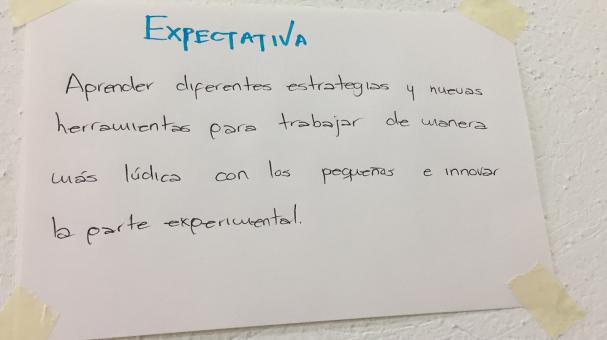 EXPECTATIVA
Aprender diferentes estrategias y nuevas
herramientas para trabajar de manera
más lúdica con los pequeños e innovar
la parte experimental.